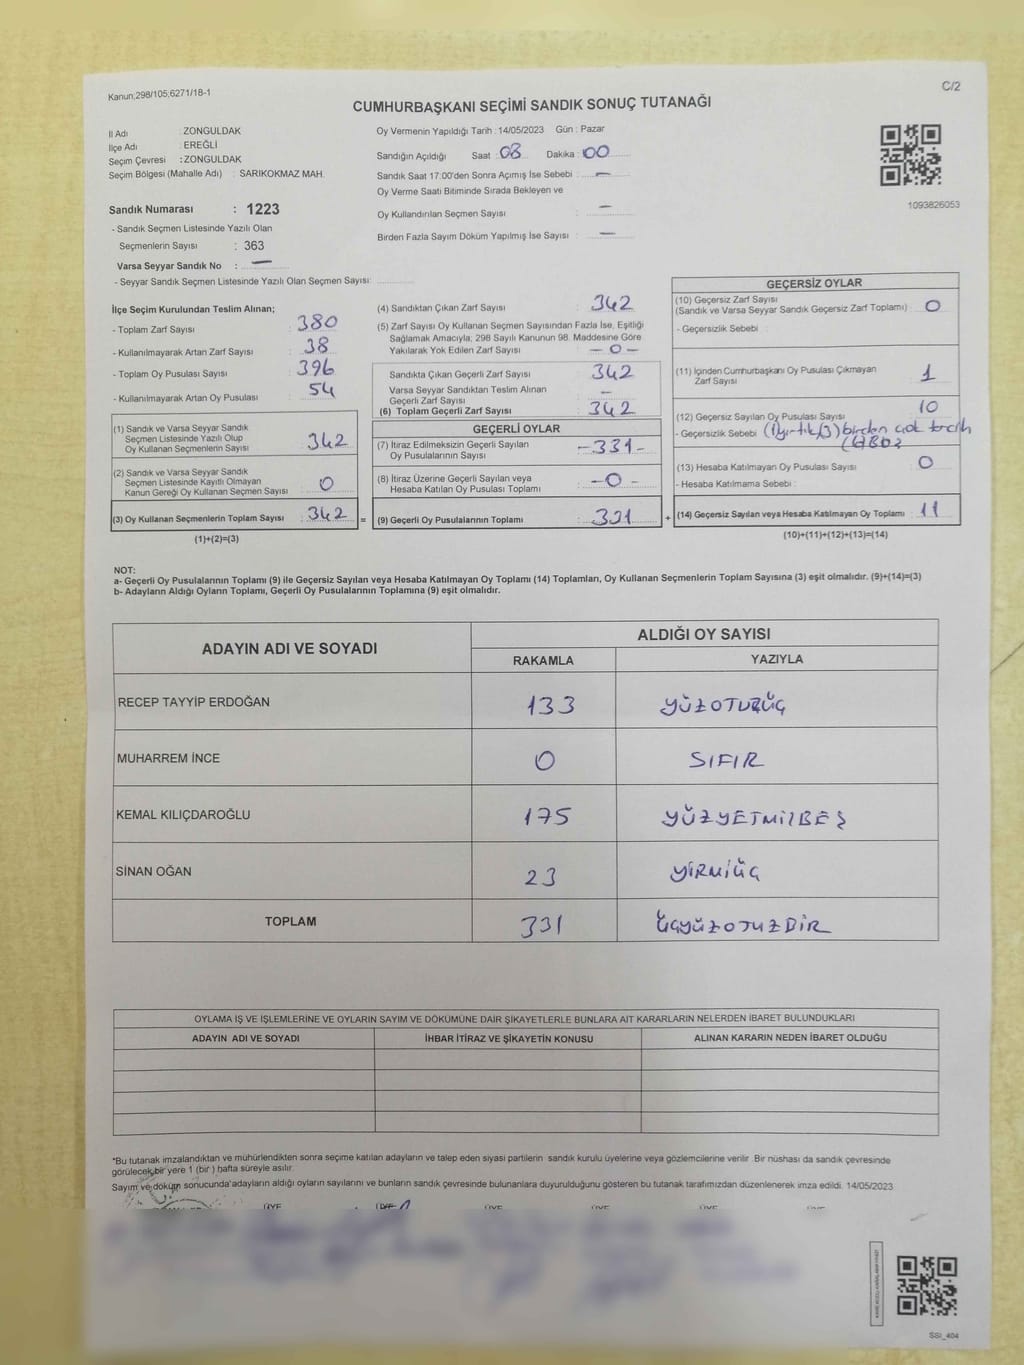 Kanun;298/105;6271/18-1
C/2
CUMHURBAŞKANI SEÇİMİ SANDIK SONUÇ TUTANAĞI
İl Adı : ZONGULDAK
İlçe Adı : EREĞLİ
Seçim Çevresi : ZONGULDAK
Seçim Bölgesi (Mahalle Adı) : SARIKOKMAZ MAH.
Sandık Numarası : 1223
- Sandık Seçmen Listesinde Yazılı Olan
Seçmenlerin Sayısı : 363
Varsa Seyyar Sandık No : —
- Seyyar Sandık Seçmen Listesinde Yazılı Olan Seçmen Sayısı:
Oy Vermenin Yapıldığı Tarih : 14/05/2023 Gün : Pazar
Sandığın Açıldığı Saat : 08 Dakika : 00
Sandık Saat 17:00'den Sonra Açımış İse Sebebi : —
Oy Verme Saati Bitiminde Sırada Bekleyen ve
Oy Kullandırılan Seçmen Sayısı : —
Birden Fazla Sayım Döküm Yapılmış İse Sayısı : —
1093826053
İlçe Seçim Kurulundan Teslim Alınan;
- Toplam Zarf Sayısı : 380
- Kullanılmayarak Artan Zarf Sayısı : 38
- Toplam Oy Pusulası Sayısı : 396
- Kullanılmayarak Artan Oy Pusulası : 54
(1) Sandık ve Varsa Seyyar Sandık
Seçmen Listesinde Yazılı Olup
Oy Kullanan Seçmen Sayısı : 342
(2) Sandık ve Varsa Seyyar Sandık
Seçmen Listesinde Kayıtlı Olmayan
Kanun Gereği Oy Kullanan Seçmen Sayısı : 0
(3) Oy Kullanan Seçmenlerin Toplam Sayısı : 342 =
(1)+(2)=(3)
(4) Sandıktan Çıkan Zarf Sayısı : 342
(5) Zarf Sayısı Oy Kullanan Seçmen Sayısından Fazla İse, Eşitliği
Sağlamak Amacıyla; 298 Sayılı Kanunun 98. Maddesine Göre
Yakılarak Yok Edilen Zarf Sayısı : — 0 —
Sandıkta Çıkan Geçerli Zarf Sayısı : 342
Varsa Seyyar Sandıktan Teslim Alınan
Geçerli Zarf Sayısı : —
(6) Toplam Geçerli Zarf Sayısı : 342
GEÇERLİ OYLAR
(7) İtiraz Edilmeksizin Geçerli Sayılan
Oy Pusulalarının Sayısı : -331-
(8) İtiraz Üzerine Geçerli Sayılan veya
Hesaba Katılan Oy Pusulası Toplamı : -0-
(9) Geçerli Oy Pusulalarının Toplamı : 331 +
GEÇERSİZ OYLAR
(10) Geçersiz Zarf Sayısı
(Sandık ve Varsa Seyyar Sandık Geçersiz Zarf Toplamı) : 0
- Geçersizlik Sebebi :
(11) İçinden Cumhurbaşkanı Oy Pusulası Çıkmayan
Zarf Sayısı : 1
(12) Geçersiz Sayılan Oy Pusulası Sayısı : 10
- Geçersizlik Sebebi : birden çok tercih
(13) Hesaba Katılmayan Oy Pusulası Sayısı : 0
- Hesaba Katılmama Sebebi :
(14) Geçersiz Sayılan veya Hesaba Katılmayan Oy Toplamı : 11
(10)+(11)+(12)+(13)=(14)
NOT:
a- Geçerli Oy Pusulalarının Toplamı (9) ile Geçersiz Sayılan veya Hesaba Katılmayan Oy Toplamı (14) Toplamları, Oy Kullanan Seçmenlerin Toplam Sayısına (3) eşit olmalıdır. (9)+(14)=(3)
b- Adayların Aldığı Oyların Toplamı, Geçerli Oy Pusulalarının Toplamına (9) eşit olmalıdır.
ADAYIN ADI VE SOYADI
ALDIĞI OY SAYISI
RAKAMLA YAZIYLA
RECEP TAYYİP ERDOĞAN 133 YÜZOTUZÜÇ
MUHARREM İNCE 0 SIFIR
KEMAL KILIÇDAROĞLU 175 YÜZYETMİŞBEŞ
SİNAN OĞAN 23 YİRMİÜÇ
TOPLAM 331 ÜÇYÜZOTUZBİR
OYLAMA İŞ VE İŞLEMLERİNE VE OYLARIN SAYIM VE DÖKÜMÜNE DAİR ŞİKAYETLERLE BUNLARA AİT KARARLARIN NELERDEN İBARET BULUNDUKLARI
ADAYIN ADI VE SOYADI İHBAR İTİRAZ VE ŞİKAYETİN KONUSU ALINAN KARARIN NEDEN İBARET OLDUĞU
*Bu tutanak imzalandıktan ve mühürlendikten sonra seçime katılan adayların ve talep eden siyasi partilerin sandık kurulu üyelerine veya gözlemcilerine verilir. Bir nüshası da sandık çevresinde
görülecek bir yere 1 (bir) hafta süreyle asılır.
Sayım ve döküm sonucunda adayların aldığı oyların sayılarını ve bunların sandık çevresinde bulunanlara duyurulduğunu gösteren bu tutanak tarafımızdan düzenlenerek imza edildi. 14/05/2023
ÜYE ÜYE ÜYE ÜYE ÜYE
SSI_404